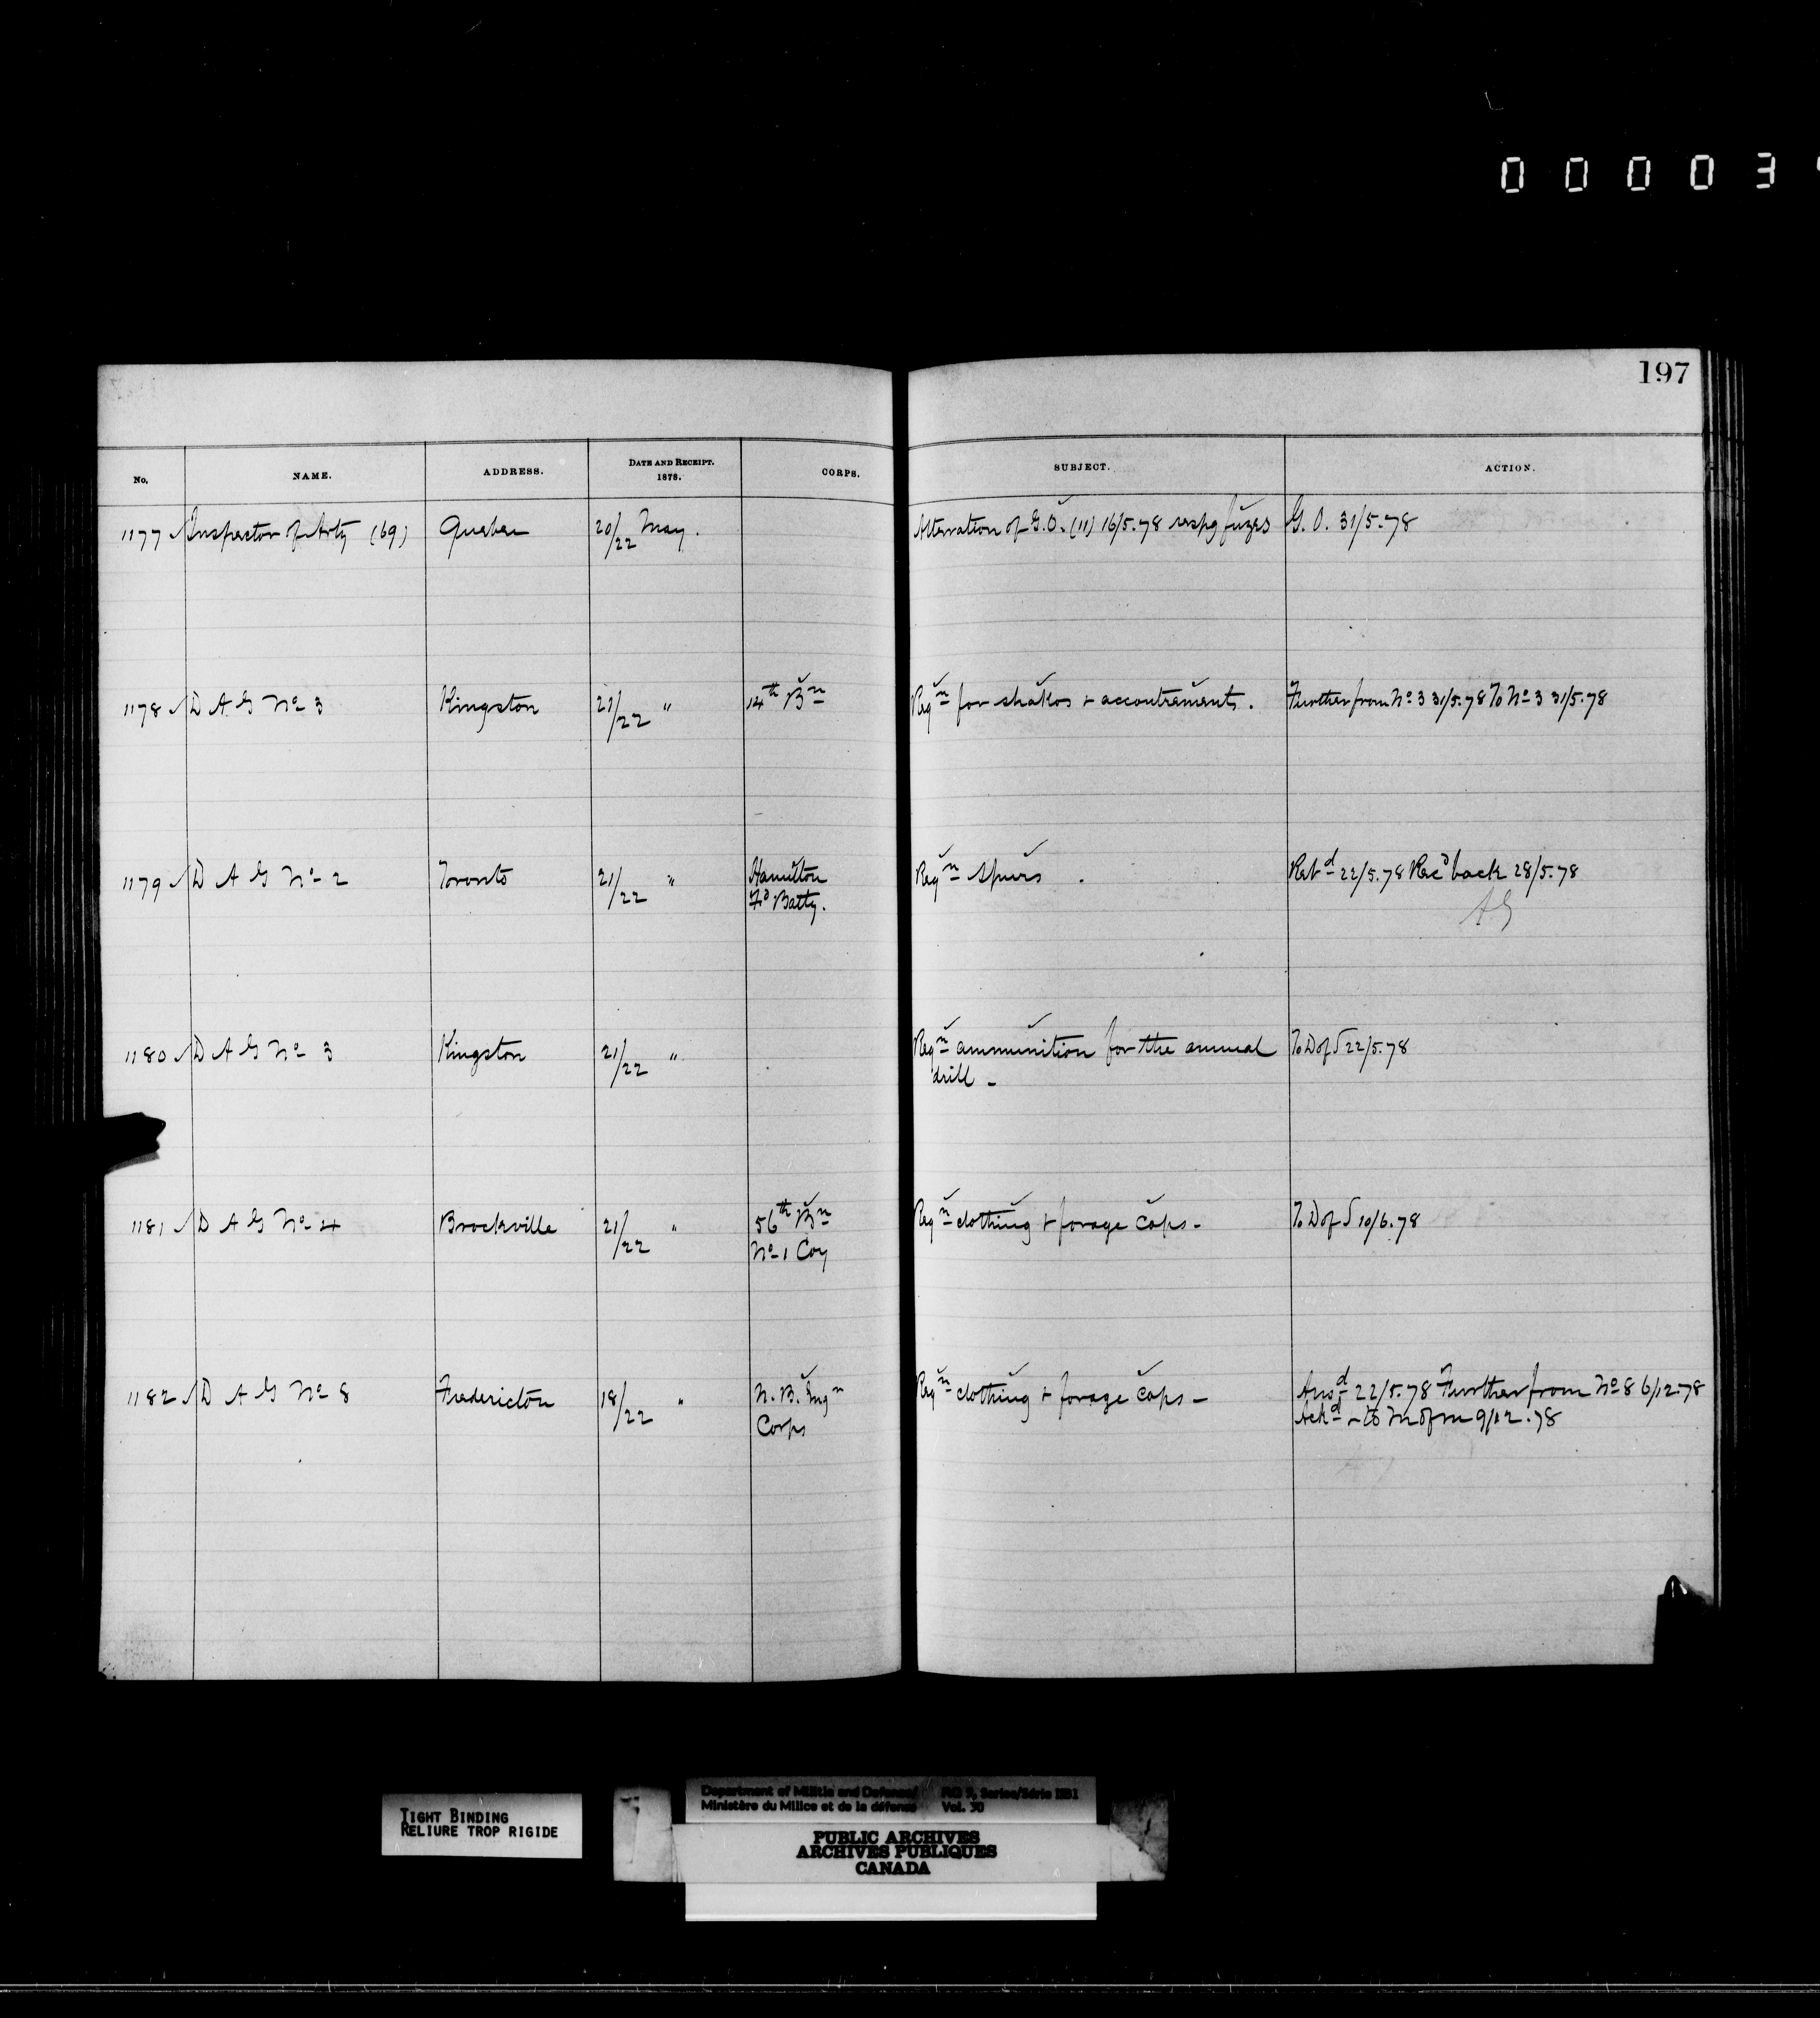 0 0 0 0 3
197
No. NAME. ADDRESS. DATE AND RECEIPT. 1878. CORPS. SUBJECT. ACTION.
1177 ✓ Inspector of Arty (69) Quebec 20/22 May. Alteration of G.O. (11) 16/5.78 respg fuzes G. O. 31/5.78
1178 ✓ D A G No 3 Kingston 21/22 " 14th Bn Reqn for shakos + accoutrements. Further from No 3 31/5.78 To No 3 31/5.78
1179 ✓ D A G No 2 Toronto 21/22 " Hamilton Reqn Spurs. Retd 22/5.78 Recd back 28/5.78
Fd Batty. AG
1180 ✓ D A G No 3 Kingston 21/22 " Reqn ammunition for the annual To D of S 22/5.78
drill -
1181 ✓ D A G No 4 Brockville 21/22 " 56th Bn Reqn clothing + forage caps - To D of S 10/6.78
No 1 Coy
1182 ✓ D A G No 8 Fredericton 18/22 " N. B. Engn Reqn clothing + forage caps - Ansd 22/5.78 Further from No 8 6/12.78
Corps Ackd - to M of M 9/12.78
TIGHT BINDING
RELIURE TROP RIGIDE
Department of Militia and Defence/ RG 9, Series/Série IIB1
Ministère du Milice et de la défense Vol. 30
PUBLIC ARCHIVES
ARCHIVES PUBLIQUES
CANADA